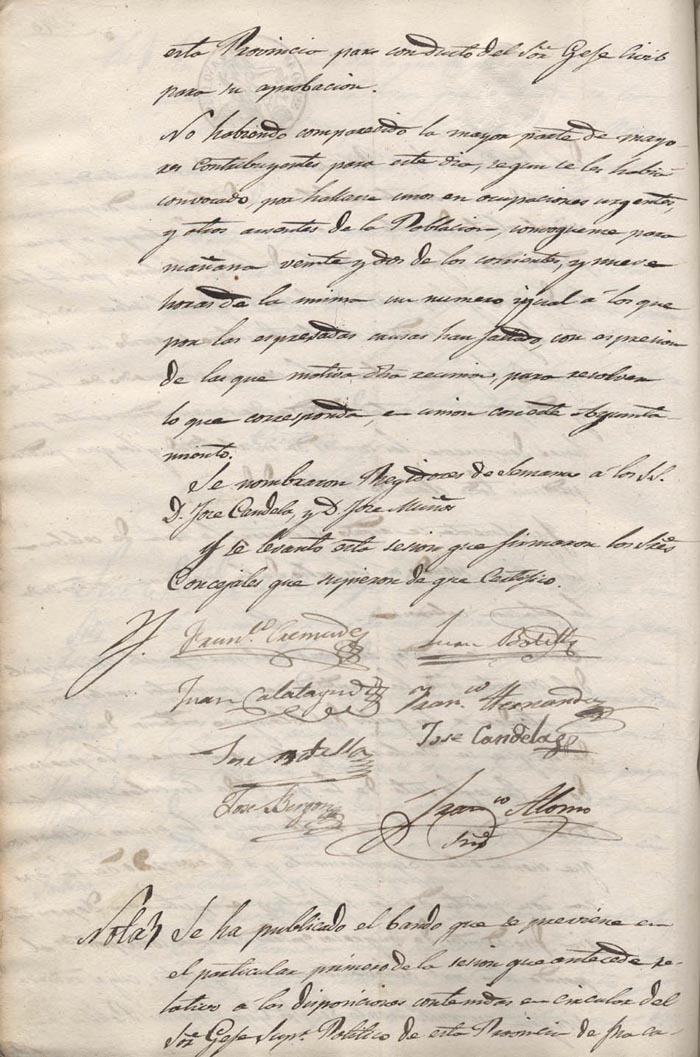 esta Provincia para conducto del Sor. Gefe Civil
para su aprobacion.
No habiendo comparecido la mayor parte de mayo
res contribuyentes para este dia, segun se les habia
convocado, por hallarse unos en ocupaciones urgentes,
y otros ausentes de la Poblacion, convoquense para
mañana veinte y dos de los corrientes, y nueve
horas de la misma un numero igual á los que
por las espresadas causas han faltado, con espresion
de la que motiva dha reunion, para resolver
lo que corresponda, en union con este Ayunta
miento.
Se nombraron Regidores de Semana a los SS.
D. Jose Candela, y D. Jose Muñoz
Y se levanto esta sesion que firmaron los Sres
Concejales que supieron de que Certifico.
Fran.co Cremades
Juan Botella
Juan Calatayud
Fran.co Hernandez
Jose Botella
Jose Candela
Jose
Fran.co Alonso
Sind
Nota
Se ha publicado el bando que se previene en
el particular primero de la sesion que antecede re-
lativo a las disposiciones contenidas en circular del
Sor. Gefe Supr. Politico de esta Provincia de fha ca-